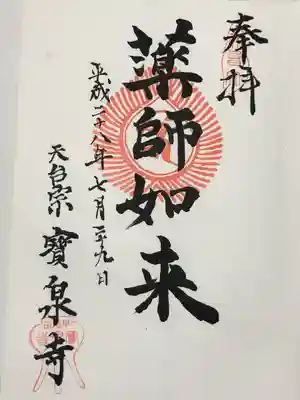 奉拝
薬師如来
平成二十八年七月二十九日
天台宗 寳泉寺